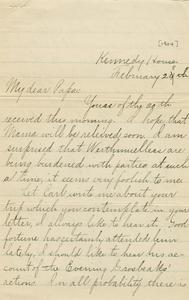 [1904]
Kennedy House
February 28th
My dear Papa:
Yours of the 27th
received this morning. I hope that
Mama will be relieved soon. I am
surprised that
being burdened with parties at such
a time, it seems very foolish to me.
Let Carl write me about your
trip which you contemplate in your
letter, I always like to hear it. Good
fortune has certainly attended him
lately, I should like to hear his ac-
count of the Evening Grosbeaks'
actions. In all probability there is